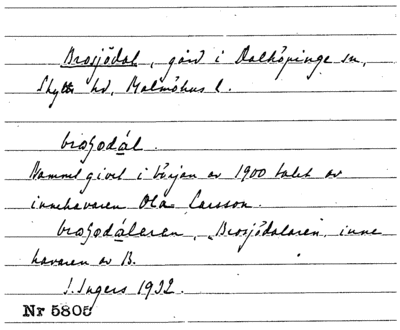 Brosjödal, gård i Dalköpinge sn,
Skytts hd, Malmöhus l.
broʃodál.
Namnet givet i början av 1900 talet av
innehavaren Ola Larsson.
broʃodáleren, „Brosjödalaren, inne
havaren av B.
I. Ingers 1932.
Nr 5805